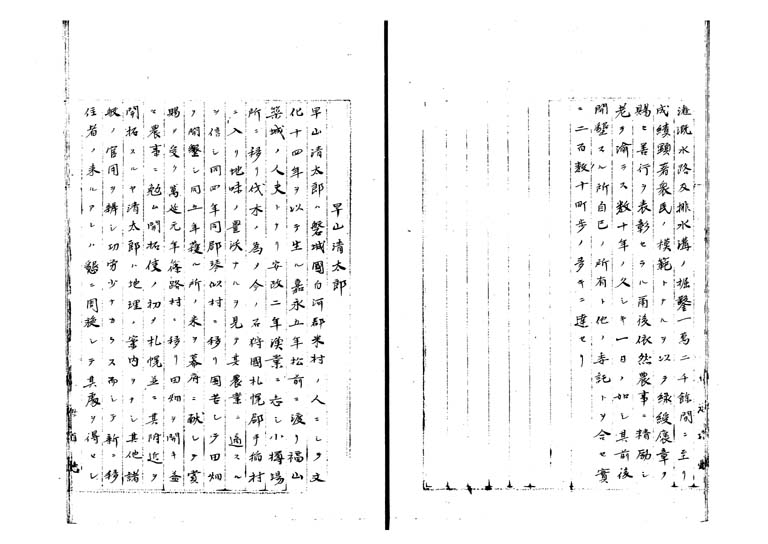 灌漑水路及排水溝ノ掘鑿一萬二千餘間ニ至リ
成績顕著衆民ノ模範トナルヲ以テ緑綬褒章ヲ
賜セ善行ヲ表彰セラル爾後依然農事ニ精励シ
老ヲ渝ラス数十年ノ久シキ一日ノ如シ其前後
開墾スル所自己ノ所有ト他ノ委託トヲ合セ實
ニ二百数十町歩ノ多キニ達セリ
早山清太郎
早山清太郎ハ磐城國白河郡米村ノ人ニシテ文
化十四年ヲ以テ生ル嘉永五年松前ニ渡リ福山
築城ノ人夫トナリ安政二年漢業ニ志シ小樽場
所ニ移リ伐木ノ為ノ今ノ石狩國札幌郡手稲村
ニ入リ地味ノ豊沃ナルヲ見テ其農業ニ適スル
ヲ信シ同四年同郡琴似村ニ移リ困苦シテ田畑
ヲ開墾シ同五年穫ル所ノ米ヲ幕府ニ献シテ賞
賜ヲ受ク萬延元年篠路村ニ移リ田畑ヲ開キ益
ニ農事ニ勉ム開拓使ノ初メ札幌並ニ其附近ヲ
開拓スルヤ清太郎ハ地理ノ案内ヲナシ其他諸
般ノ官用ヲ辨シ功労少ナカラス而シテ新ニ移
住者ノ来ルアレハ懇ニ周旋シテ其處ヲ得セシ